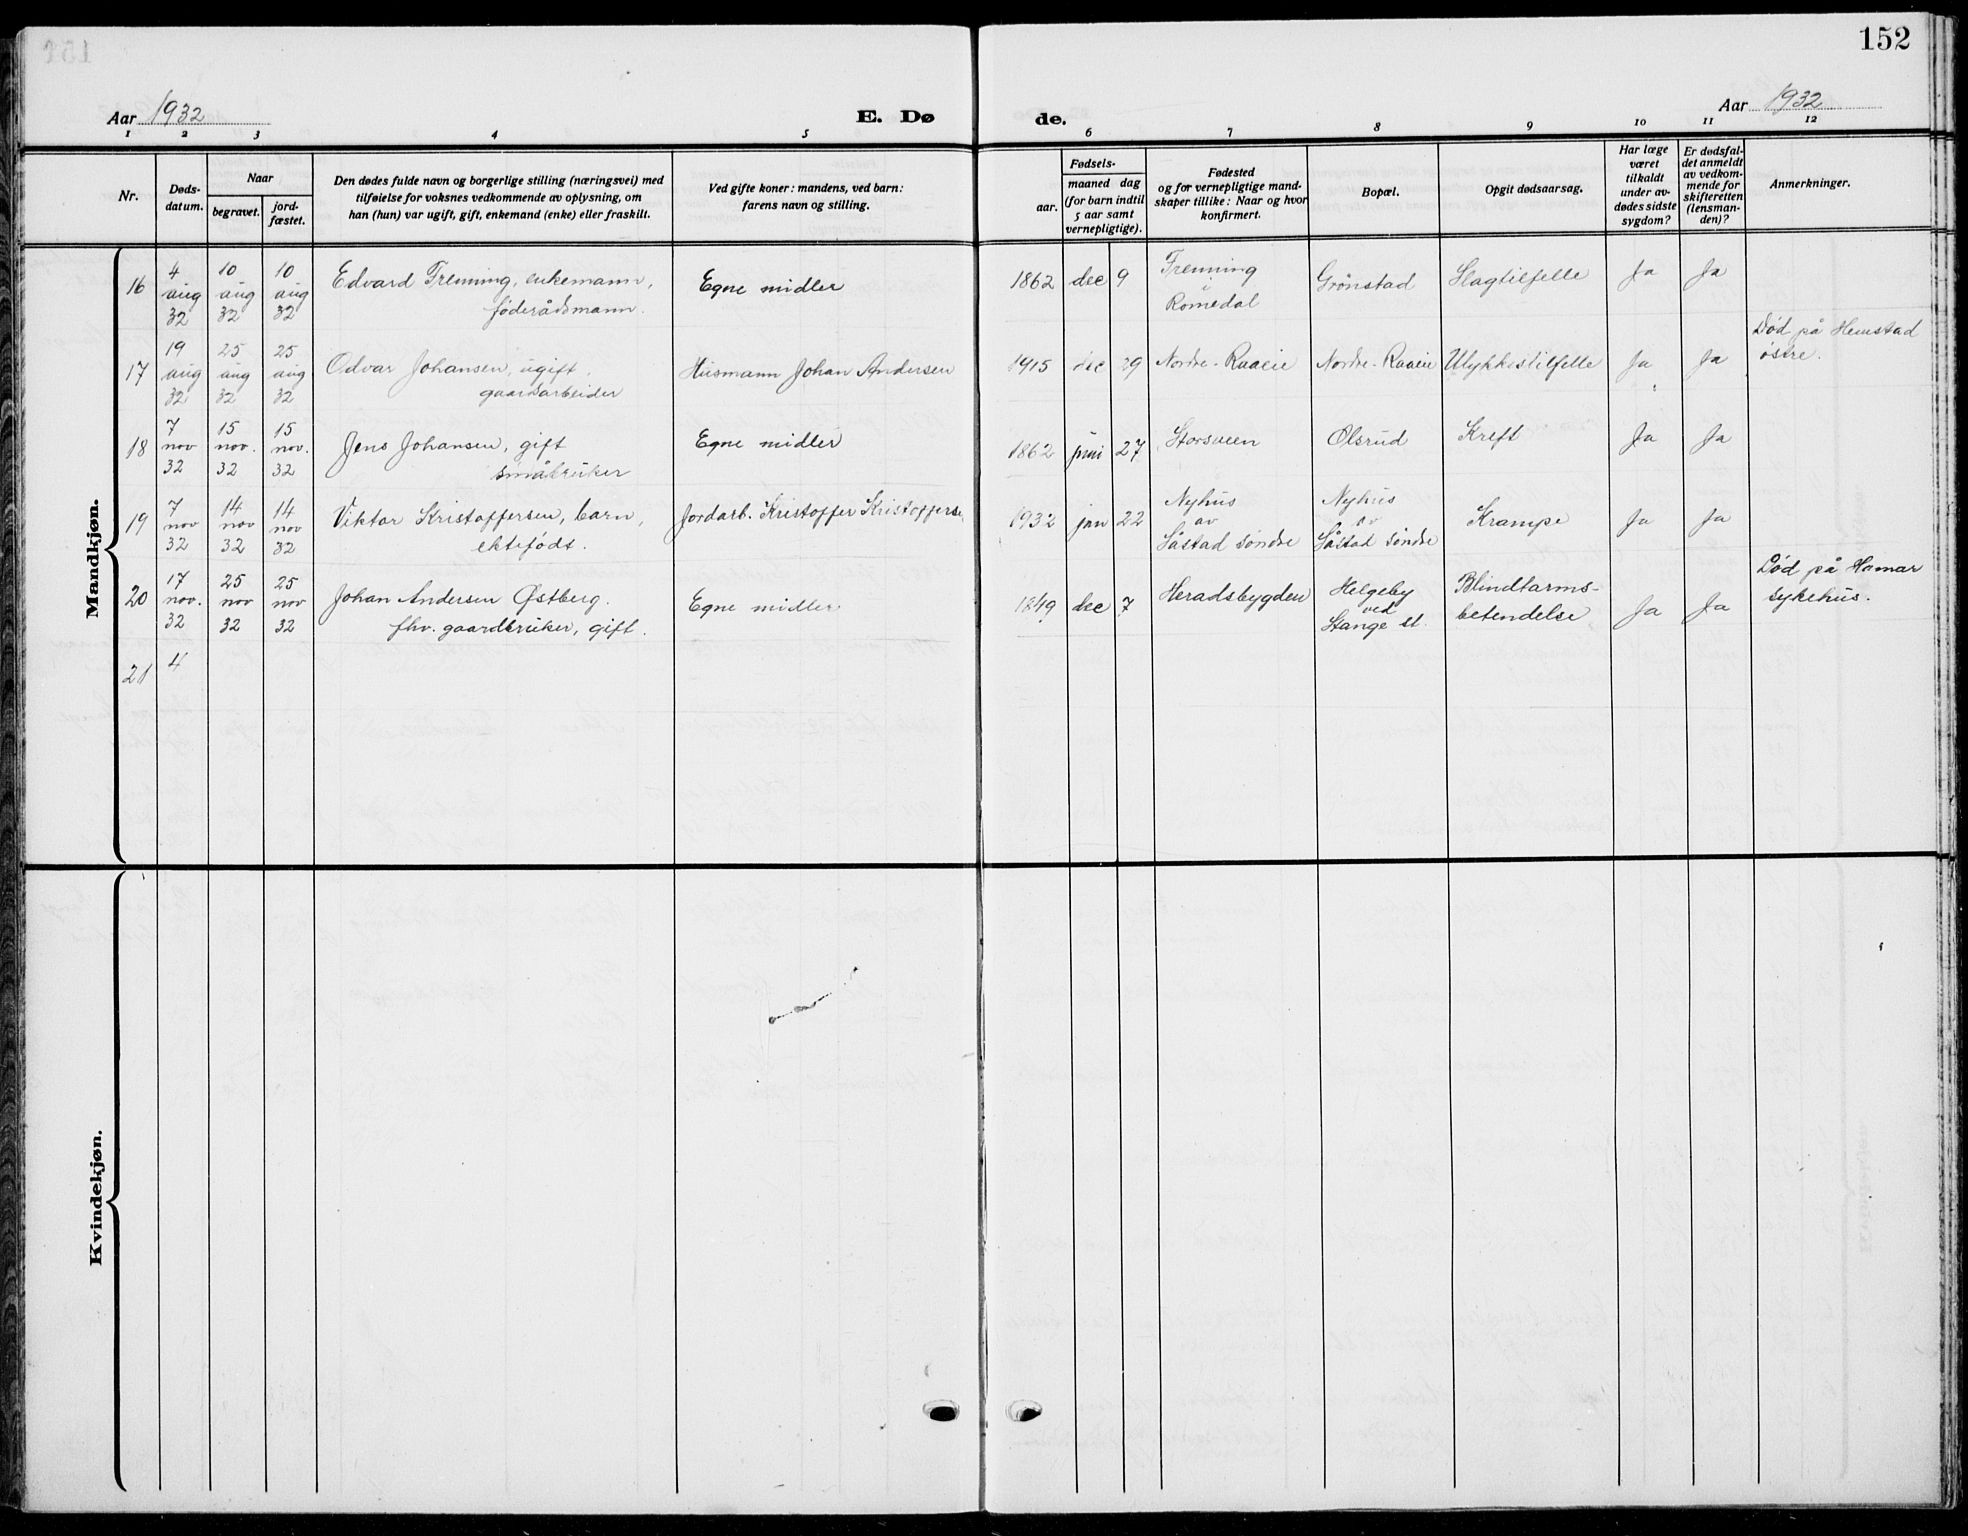 152
Aar 1932
E. Dø
de.
Aar 1932
1 2 3 4 5 6 7 8 9 10 11 12
Nr.
Døds-
datum.
Naar
begravet.
jord-
fæstet.
Den dødes fulde navn og borgerlige stilling (næringsvei) med
tilføielse for voksnes vedkommende av oplysning, om
han (hun) var ugift, gift, enkemand (enke) eller fraskilt.
Ved gifte koner: mandens, ved barn:
farens navn og stilling.
Fødsels-
aar.
maaned dag
(for barn indtil
5 aar samt
vernepligtige).
Fødested
og for vernepligtige mand-
skaper tillike: Naar og hvor
konfirmert.
Bopæl.
Opgit dødsaarsag.
Har læge
været
tilkaldt
under av-
dødes sidste
sygdom?
Er dødsfal-
det anmeldt
av vedkom-
mende for
skifteretten
(lensman-
den)?
Anmerkninger.
Mandkjøn.
16
4
aug
32
10
aug
32
10
aug
32
Edvard Frenning, enkemann,
föderådsmann.
Egne midler
1862 dec 9
Frenning
i
Romedal
Grönstad
Slagtilfelle
Ja
Ja
17
19
aug
32
25
aug
32
25
aug
32
Odvar Johansen, ugift,
gaardsarbeider
Husmann Johan Andersen
1915 dec 29
Nordre-Raaeie
Nordre-Raaeie
Ulykkestilfelle
Ja
Ja
Död på Hemstad
östre.
18
7
nov
32
15
nov.
32
15
nov.
32
Jens Johansen, gift
småbruker
Egne midler
1862 juni 27
Storsveen
Olsrud
Kreft
Ja
Ja
19
7
nov
32
14
nov
32
14
nov
32
Viktor Kristoffersen, barn,
ektefödt.
Jordarb. Kristoffer Kristofferse
1932 jan 22
Nyhus
av
Såstad söndre
Nyhus
av
Såstad söndre
Krampe
Ja
Ja
20
17
nov.
32
25
nov
32
25
nov
32
Johan Andersen Østberg.
fhv. gaardbruker, gift.
Egne midler
1849 dec 7
Heradsbygden
Helgeby
ved
Stange st.
Blindtarms-
betendelse
Ja
Ja
Död på Hamar
sykehus.
21
4
Kvindekjøn.